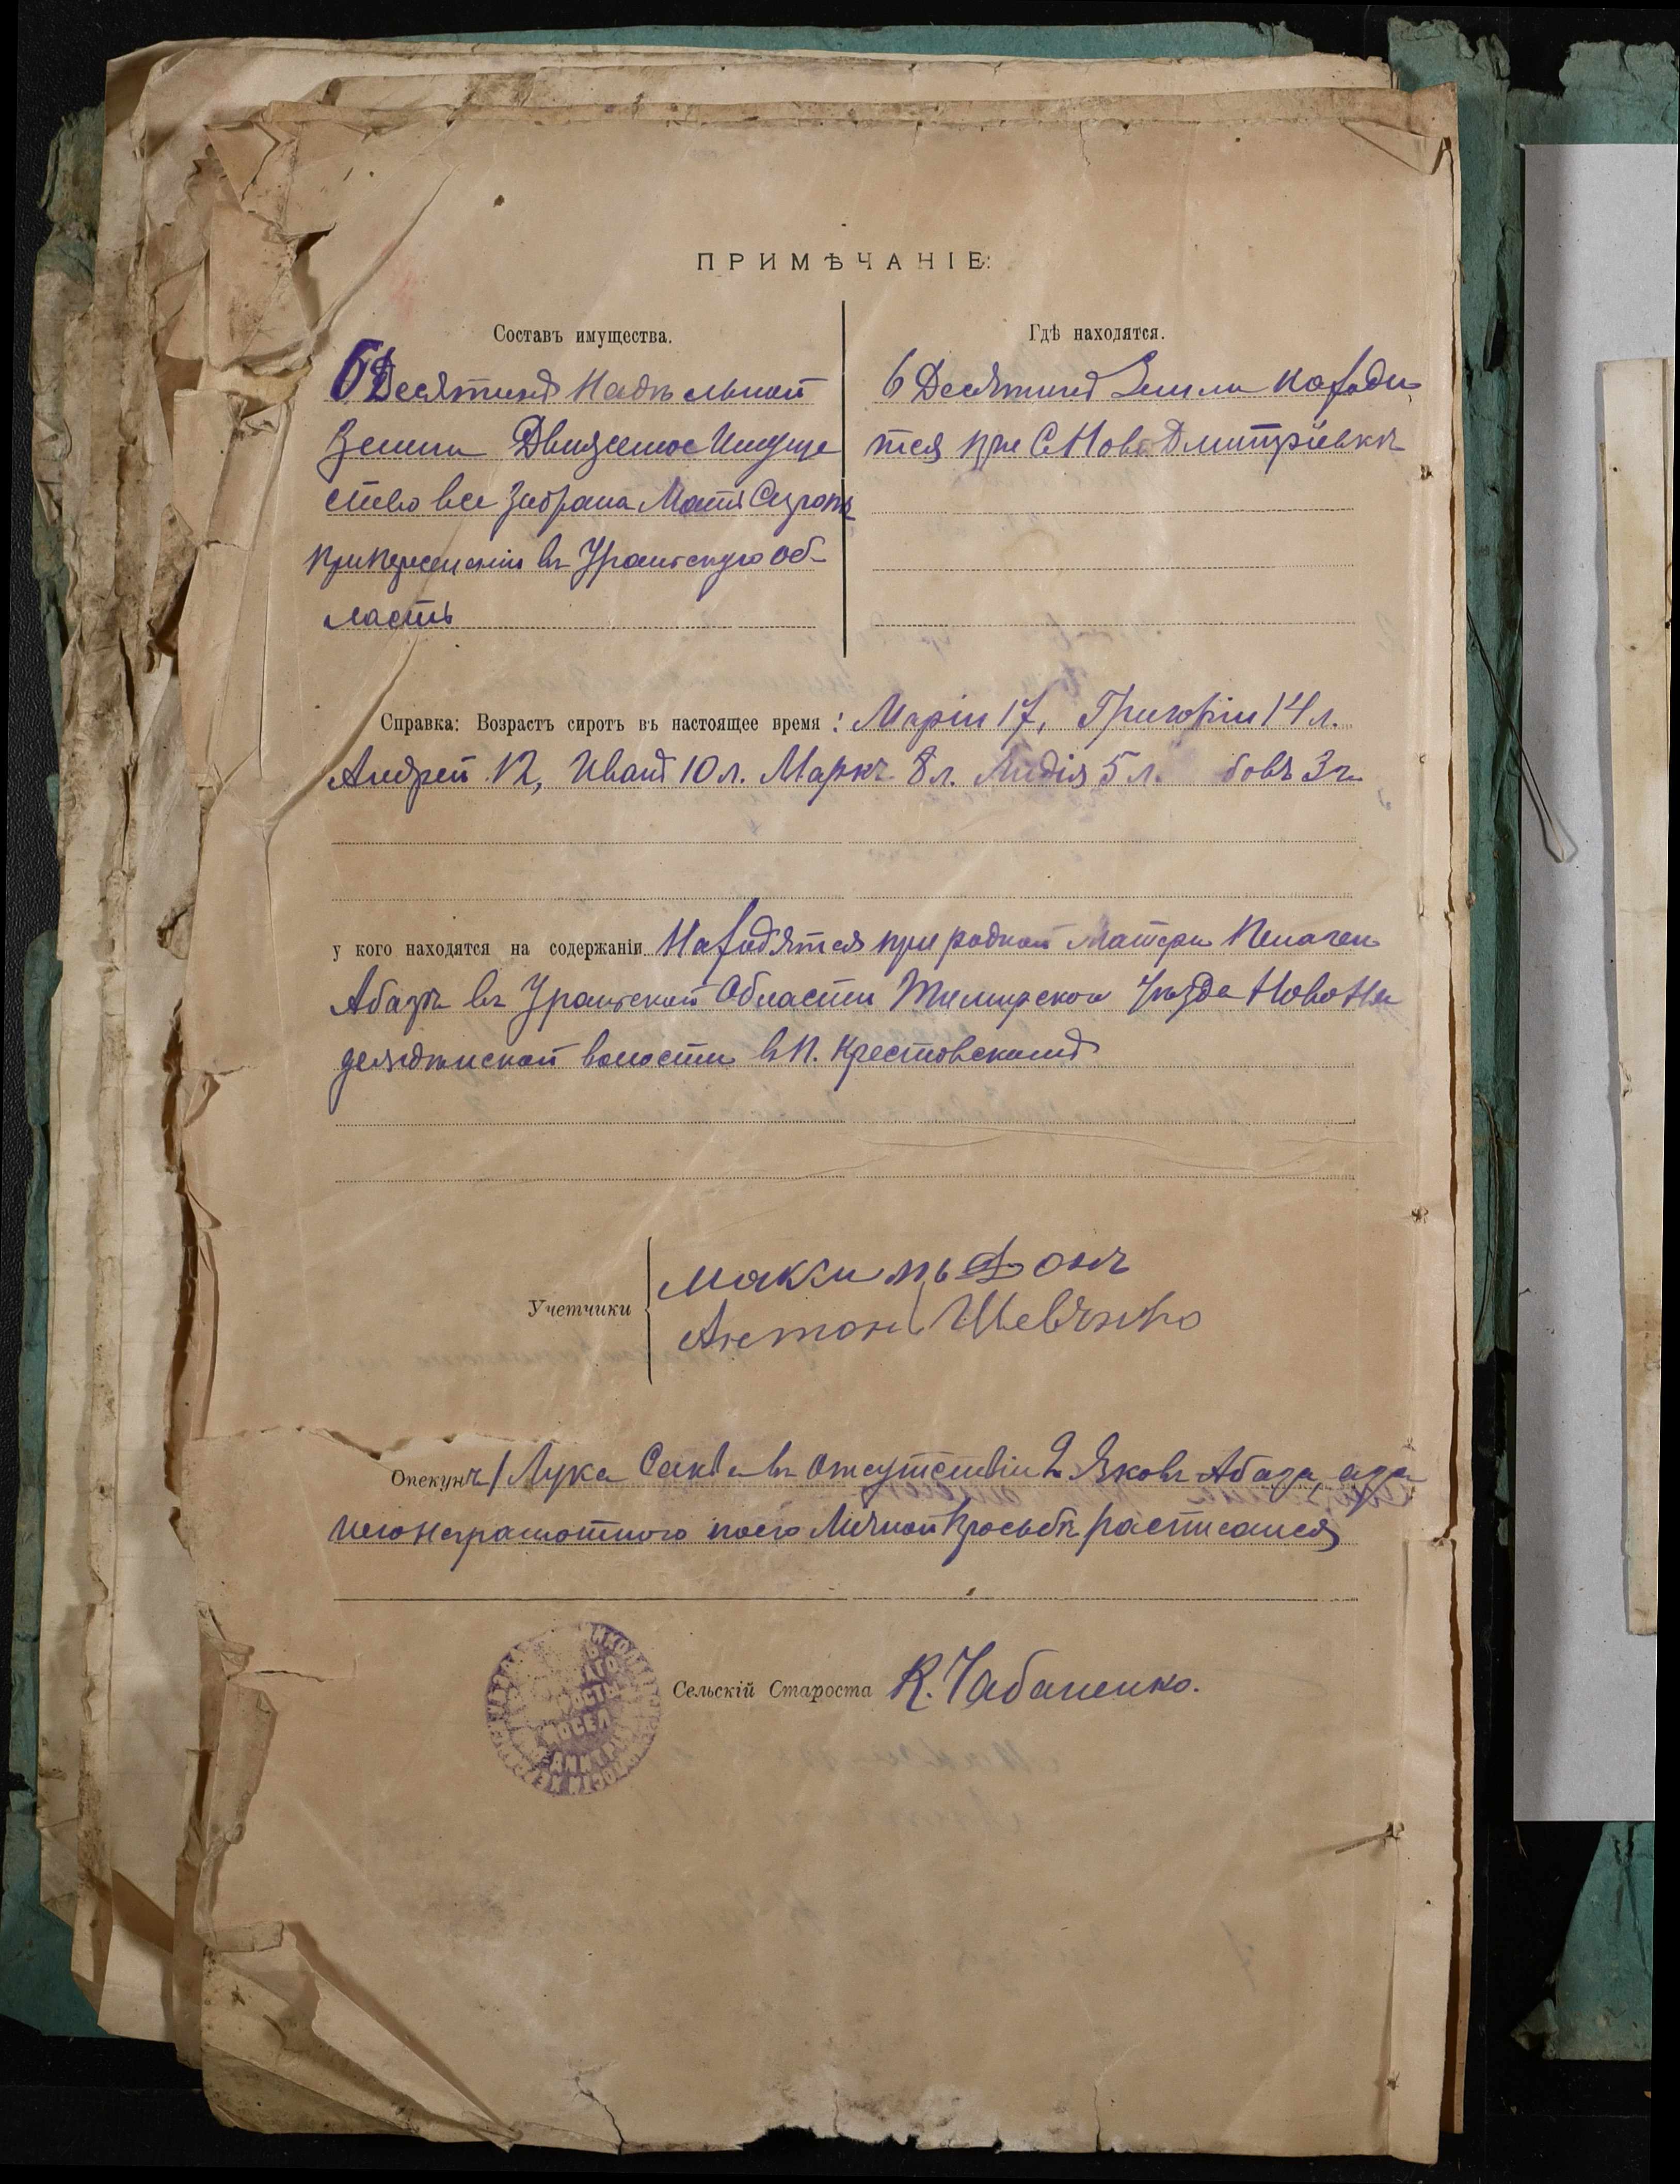 ПРИМѢЧАНІЕ:
Составъ имущества.
6 Десятинъ Надѣльной
Земли Движемое Имуще
ство все Забрала Мать Сиротъ
при переселеніи въ Уральскую об-
ласть
Гдѣ находятся.
6 Десятинъ Земли находи
тся при С Ново Дмитріевкѣ
Справка: Возрастъ сиротъ въ настоящее время: Маріи 17, Григоріи 14 л.
Андрей 12, Иванъ 10 л. Маркъ 8 л. Лидія 5 л. 3 г.
у кого находятся на содержаніи Находятся при родной Матери Пелагеи
Абазѣ въ Уральской Области Темирского Уѣзда Ново
волости въ П. Крестовскомъ
Учетчики
Антон Шевчнко
Опекунъ 1 Лука въ отсутствіи 2 Яковъ Абаза, а за
него неграмотного по его Личной Просьбѣ расписался
Сельскій Староста К. Чабаненко.